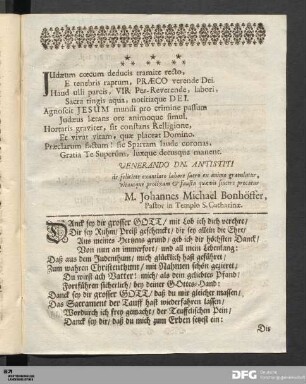 JUdæum cœcum deducis tramite recto,
E tenebris raptum, PRÆCO verende Dei.
Haud ulli parcis, VIR Per-Reverende, labori,
Sacra tingis aqua, notitiaque DEI.
Agnoscit JESUM mundi pro crimine passum
Judæus lætans ore animoque simul.
Hortaris graviter, sit constans Relligione,
Et vivat vitam, quæ placeat Domino.
Præclarum factum! sic Spartam laude coronas,
Gratia Te Superûm, luxque decusque manent.
VENERANDO DN. ANTISTITI
de feliciter exantlato labore sacro ex animo gratulatur,
vitamque prolixam & faustam sincere precatur
M. Johannes Michael Bonhöffer,
Pastor in Templo S. Catharinæ.
DAnck sey dir grosser GOTT/ mit Lob ich dich verehre/
Dir sey Ruhm/ Preiß geschenckt/ dir sey allein die Ehre/
Aus meines Hertzens grund/ geb ich dir höchsten Danck/
Von nun an immerfort/ und all mein Lebenlang:
Daß aus dem Judenthum/ mich glücklich hast geführet/
Zum wahren Christenthum/ mit Nahmen schön gezieret;
Du wollst auch Vatter! mich als dein geliebtes Pfand/
Fortführen sicherlich/ bey deiner Gottes-Hand:
Danck sey dir grosser GOTT/ daß du mir gleicher massen/
Das Sacrament der Tauff hast wiederfahren lassen/
Wordurch ich frey gemacht/ der Teuffelischen Pein/
Danck sey dir/ daß du mich zum Erben setzest ein:
Die
DFG